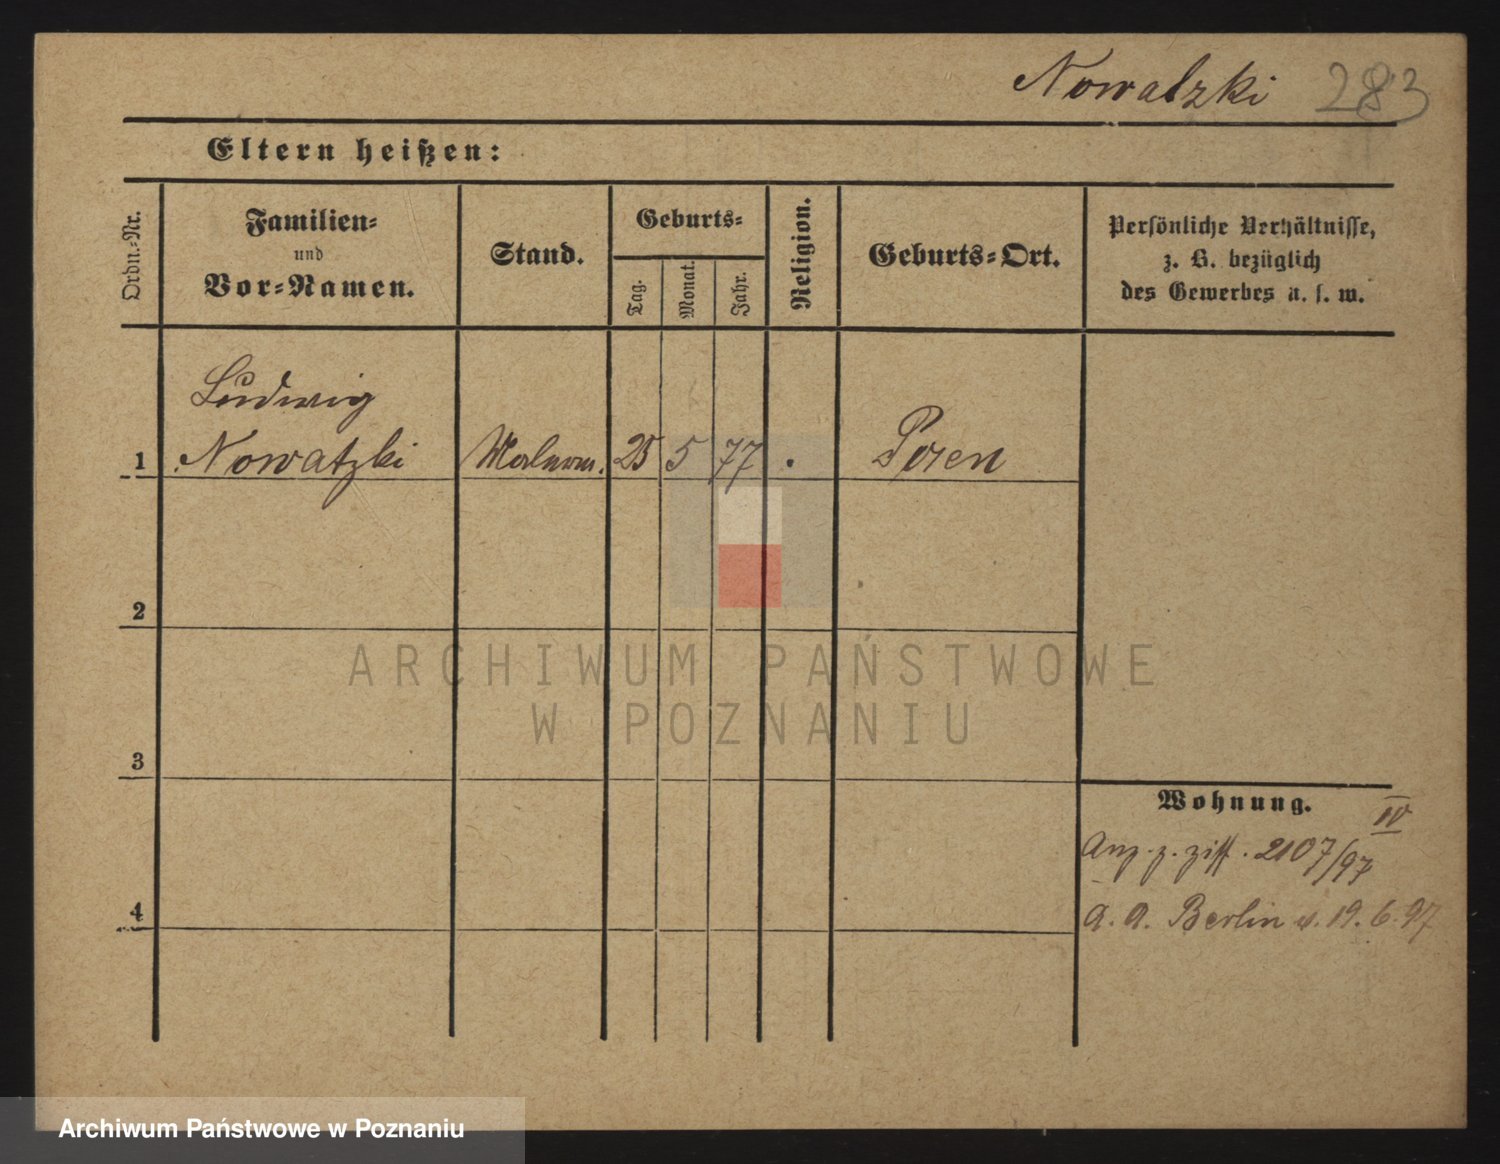 Nowatzki 283
Eltern heißen:
Ordn.-Nr.
Familien-
und
Vor-Namen.
Stand.
Geburts-
Tag.
Monat.
Jahr.
Religion.
Geburts-Ort.
Persönliche Verhältnisse,
z. B. bezüglich
des Gewerbes u. s. w.
Ludwig
1 Nowatzki 25 5 77 . Posen
2
3
4
Wohnung.
IV
Anz. z. Ziff. 2107/97
a. a. Berlin v. 19. 6. 97
ARCHIWUM PAŃSTWOWE
W POZNANIU
Archiwum Państwowe w Poznaniu